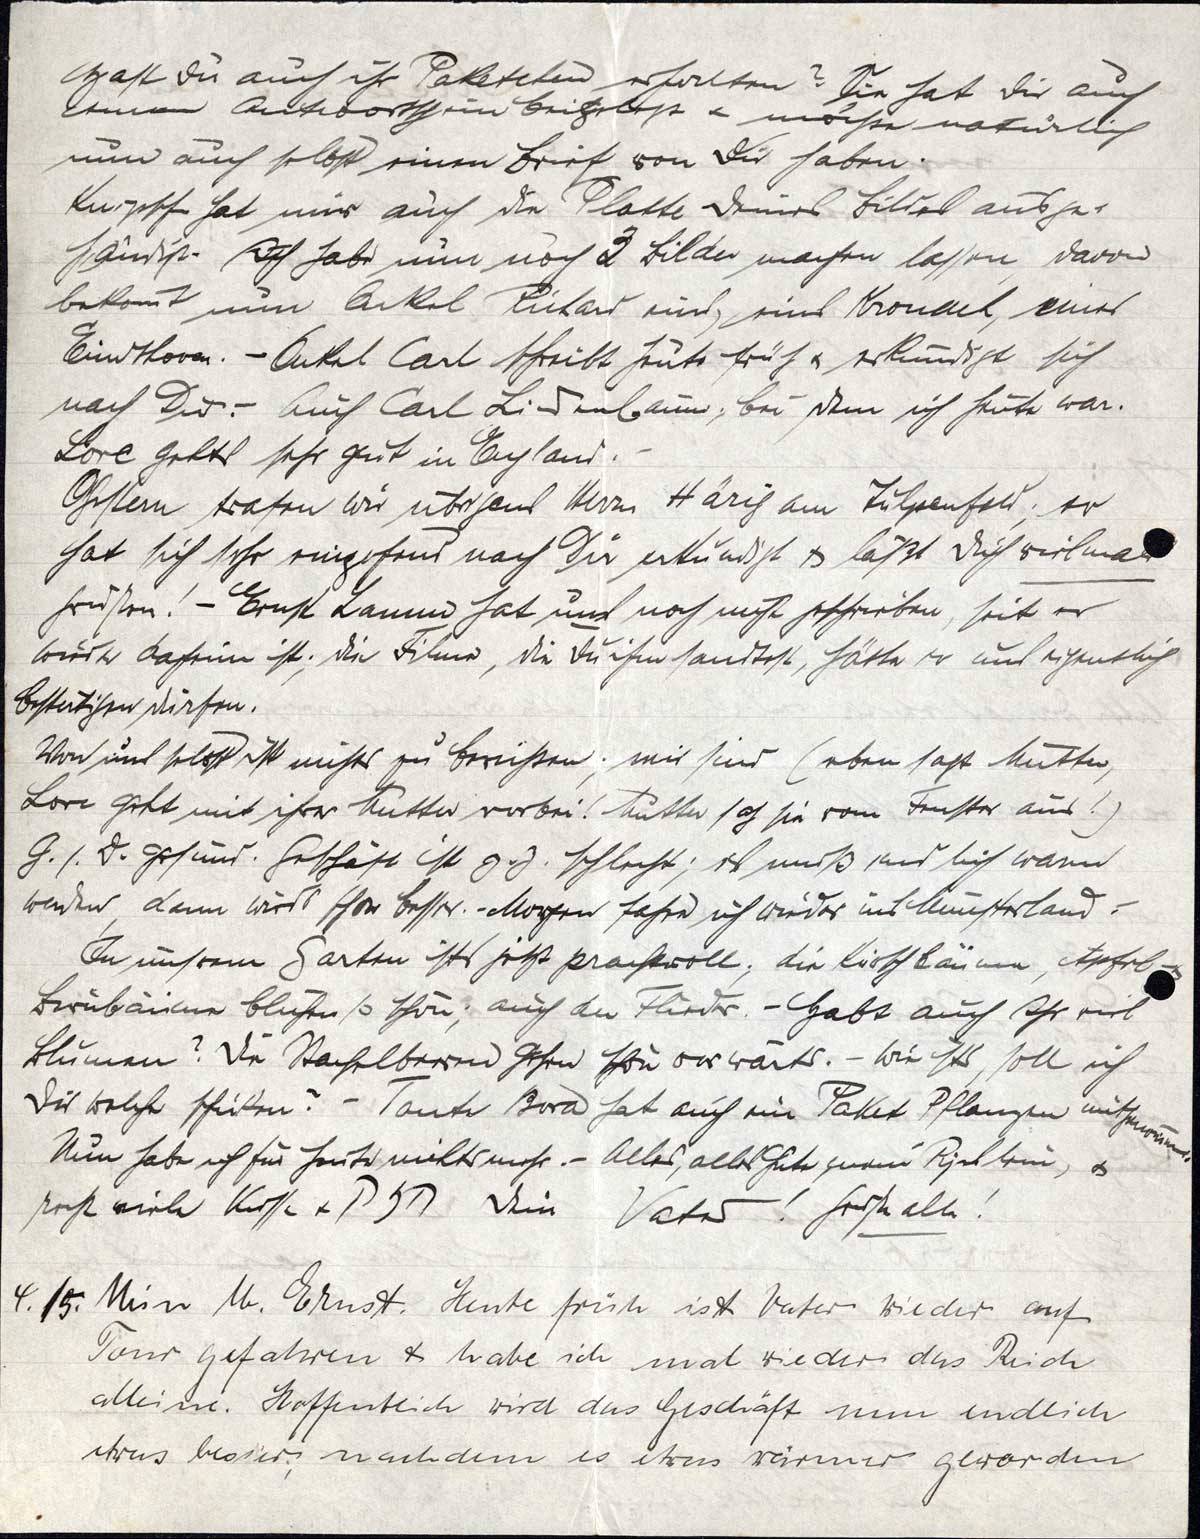 Hast Du auch ihr Paketchen erhalten? Sie hat Dir auch
einen Antwortschein beigelegt & möchte natürlich
nun auch selbst einen Brief von Dir haben.
hat mir auch die Platte Deines Bildes ausge-
händigt. Ich habe nun noch 3 Bilder machen lassen, davon
bekommt nun Onkel Richard eins, eins Krondel, eines
Eindhoven. – Onkel Carl schreibt heute früh & erkundigt sich
nach Dir. – Auch Carl Lindenbaum, bei dem ich heute war.
Lore gehts sehr gut in England. –
Gestern trafen wir übrigens Herrn Härig am Tulpenfeld; er
hat sich sehr eingehend nach Dir erkundigt & läßt Dich vielmals
grüßen! – Ernst Lamm hat uns noch nicht geschrieben, seit er
wieder daheim ist; die Filme, die sandtest, hätte er uns eigentlich
bestätigen dürfen.
Von uns selbst ist nichts zu berichten; wir sind (eben sagt Mutter,
Lore geht mit ihrer Mutter vorbei! Mutter sah sie vom Fenster aus!)
G. s. D. gesund. Geschäft ist z. Z. schlecht; es muß endlich warm
werden, dann wirds schon besser. – Morgen fahre ich wieder ins Münsterland. –
In unserem Garten ists jetzt prachtvoll; die Kirschbäume, Apfel- &
Birnbäume blühen so schön; auch der Flieder. – Habt auch Ihr viel
Blumen? Die Stachelbeeren gehen schön vorwärts. – Wie ists, soll ich
Dir welche schicken? – Tante Bora hat auch ein Paket Pflanzen mitgenommen.
Nun habe ich für heute nichts mehr. – Alles, alles Gute, mein &
recht viele Küsse & Dein Vater! Grüße alle!
4./5. Mein lb. Ernst. Heute früh ist Vater wieder auf
Tour gefahren & habe ich mal wieder das Reich
alleine. Hoffentlich wird das Geschäft nun endlich
etwas besser, nachdem es etwas wärmer geworden